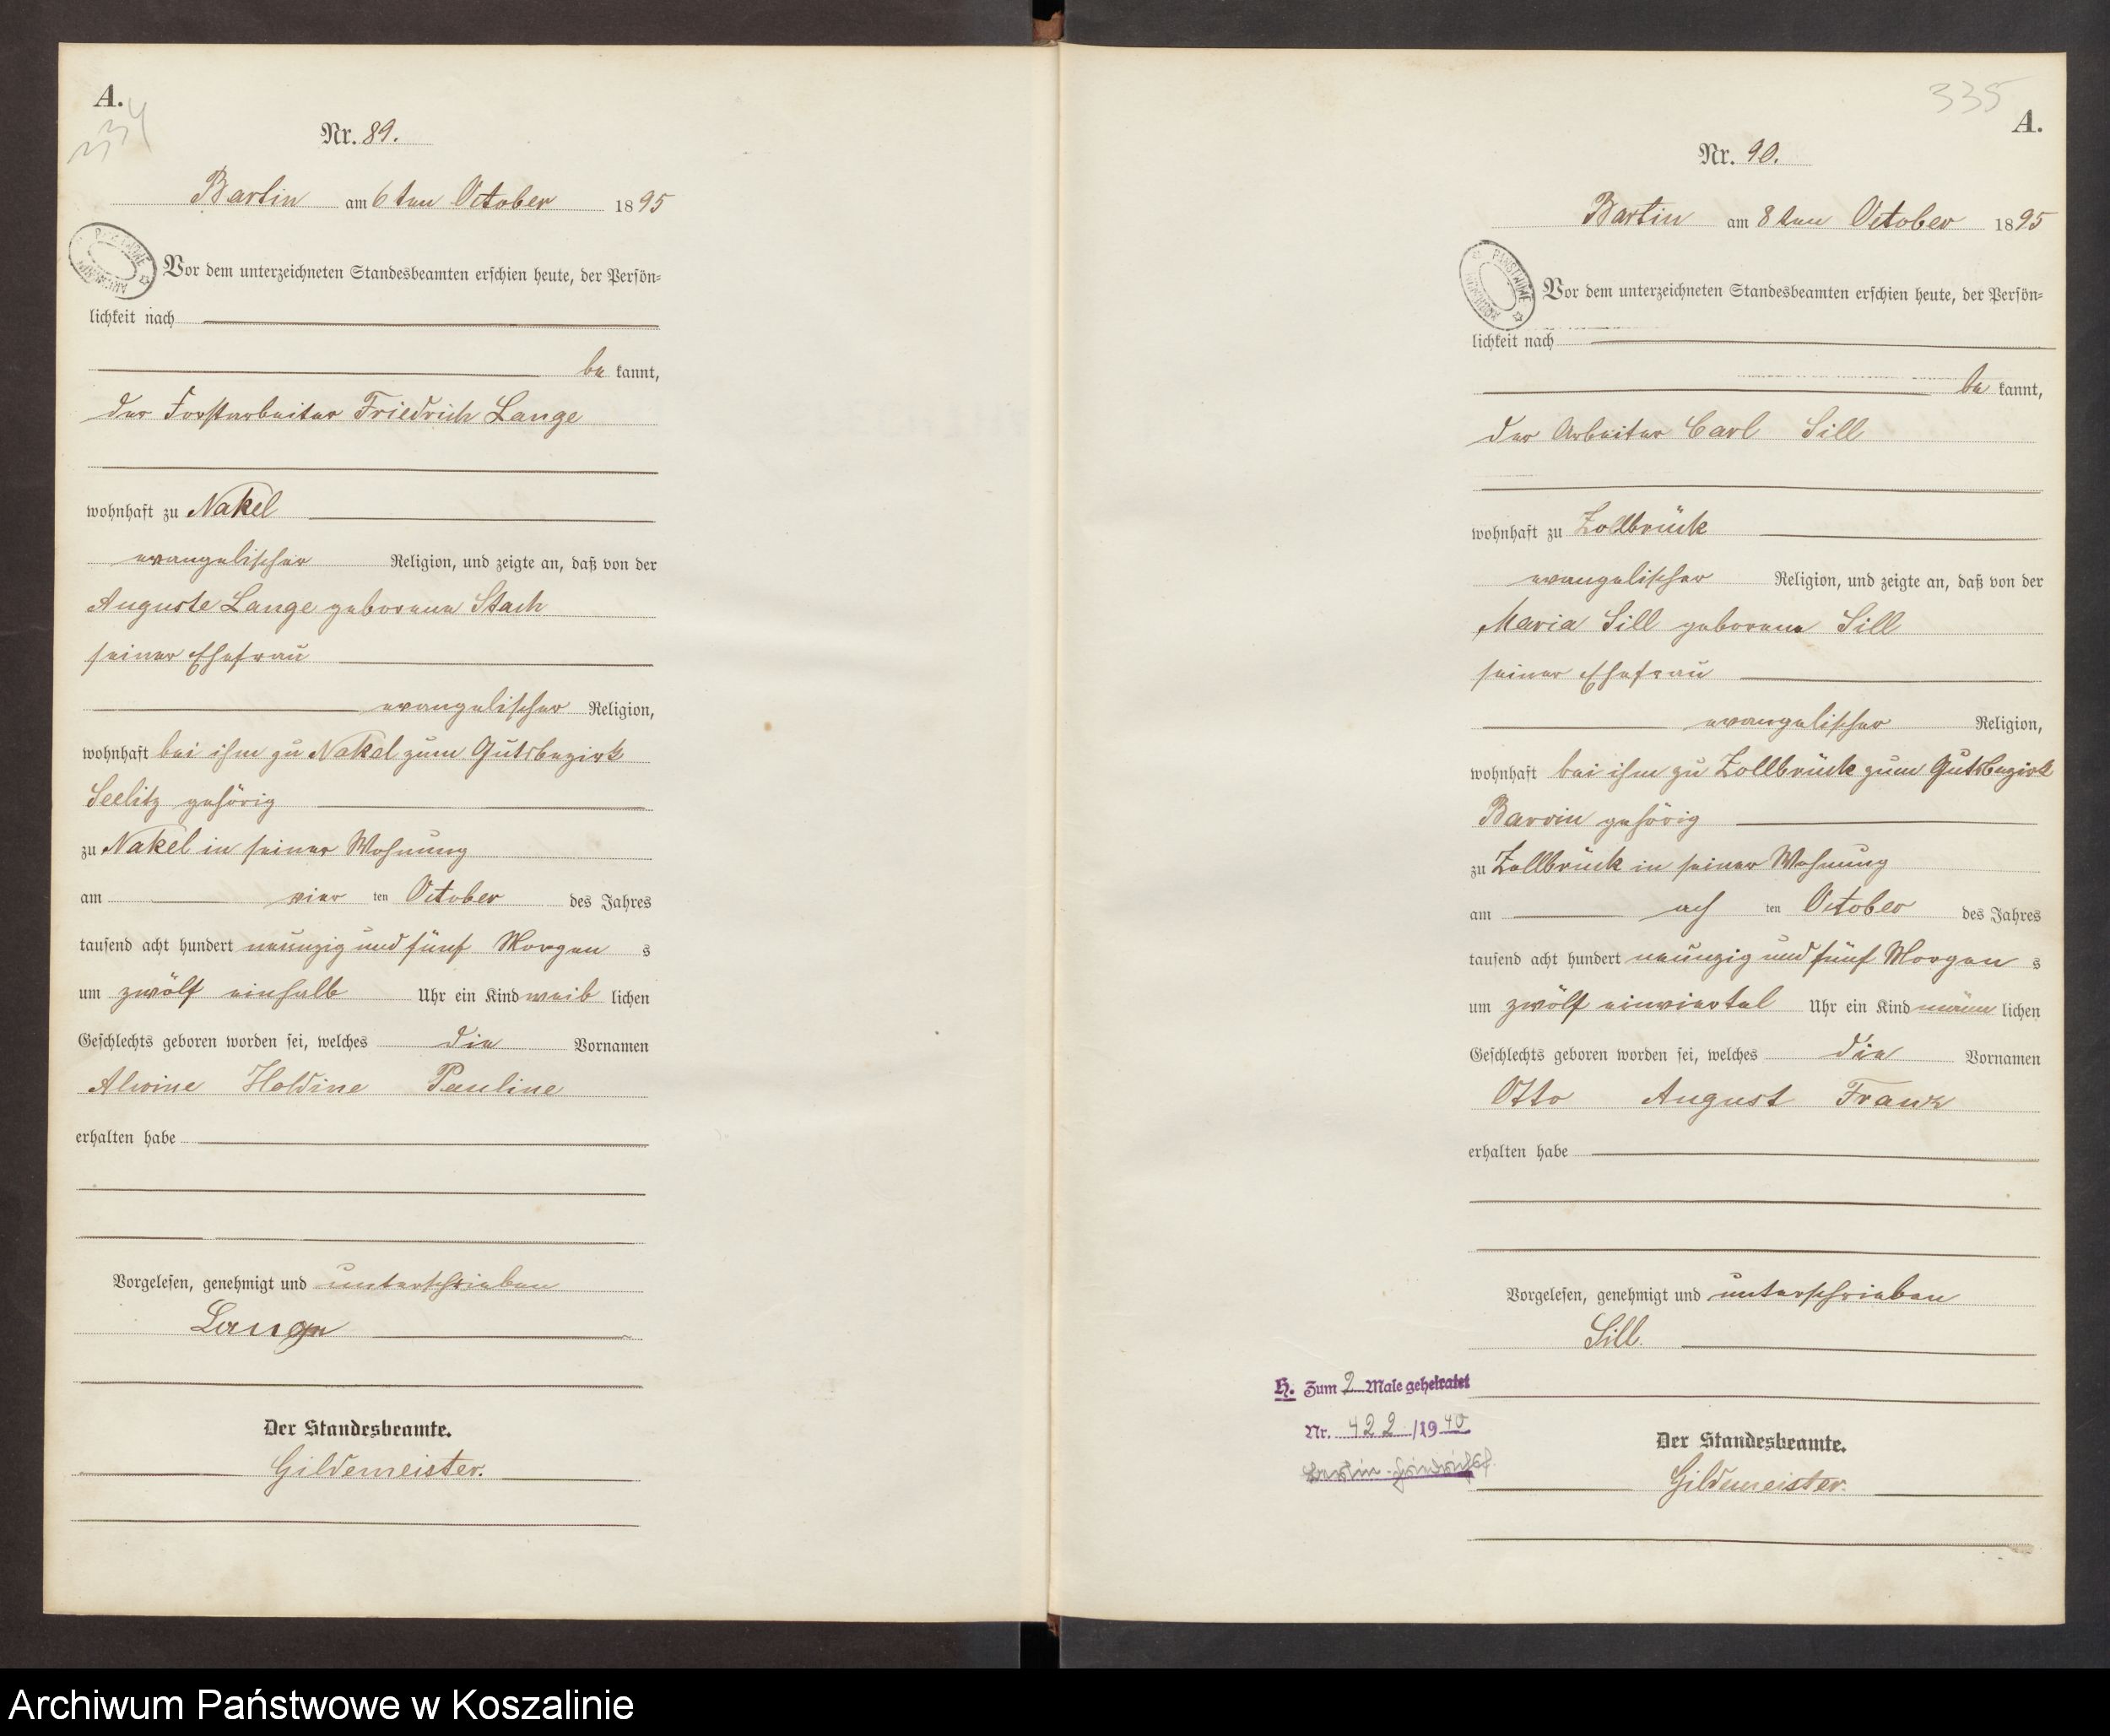 A.
334
Nr. 89.
Bartin am 6 ten October 1895
Vor dem unterzeichneten Standesbeamten erschien heute, der Persön=
lichkeit nach
be kannt,
der Forstarbeiter Friedrich Lange
wohnhaft zu Nakel
evangelischer Religion, und zeigte an, daß von der
Auguste Lange geborene Stach
seiner Ehefrau
evangelischer Religion,
wohnhaft bei ihm zu Nakel zum Gutsbezirk
Seelitz gehörig
zu Nakel in seiner Wohnung
am vier ten October des Jahres
tausend acht hundert neunzig und fünf Morgen s
um zwölf einhalb Uhr ein Kind weib lichen
Geschlechts geboren worden sei, welches die Vornamen
Alwine Holdine Pauline
erhalten habe
Vorgelesen, genehmigt und unterschrieben
Lange
Der Standesbeamte.
Gildemeister.
335
A.
Nr. 90.
Bartin am 8 ten October 1895
PAŃSTWOWE
Vor dem unterzeichneten Standesbeamten erschien heute, der Persön=
lichkeit nach
be kannt,
der Arbeiter Carl Sill
wohnhaft zu Zollbrück
evangelischer Religion, und zeigte an, daß von der
Maria Sill geborene Sill
seiner Ehefrau
evangelischer Religion,
wohnhaft bei ihm zu Zollbrück zum Gutsbezirk
Barvin gehörig
zu Zollbrück in seiner Wohnung
am ach ten October des Jahres
tausend acht hundert neunzig und fünf Morgen s
um zwölf einviertel Uhr ein Kind männ lichen
Geschlechts geboren worden sei, welches die Vornamen
Otto August Franz
erhalten habe
Vorgelesen, genehmigt und unterschrieben
Sill.
H. Zum 2 Male geheiratet
Nr. 422/1940
Berlin-
Der Standesbeamte.
Gildemeister.
Archiwum Państwowe w Koszalinie